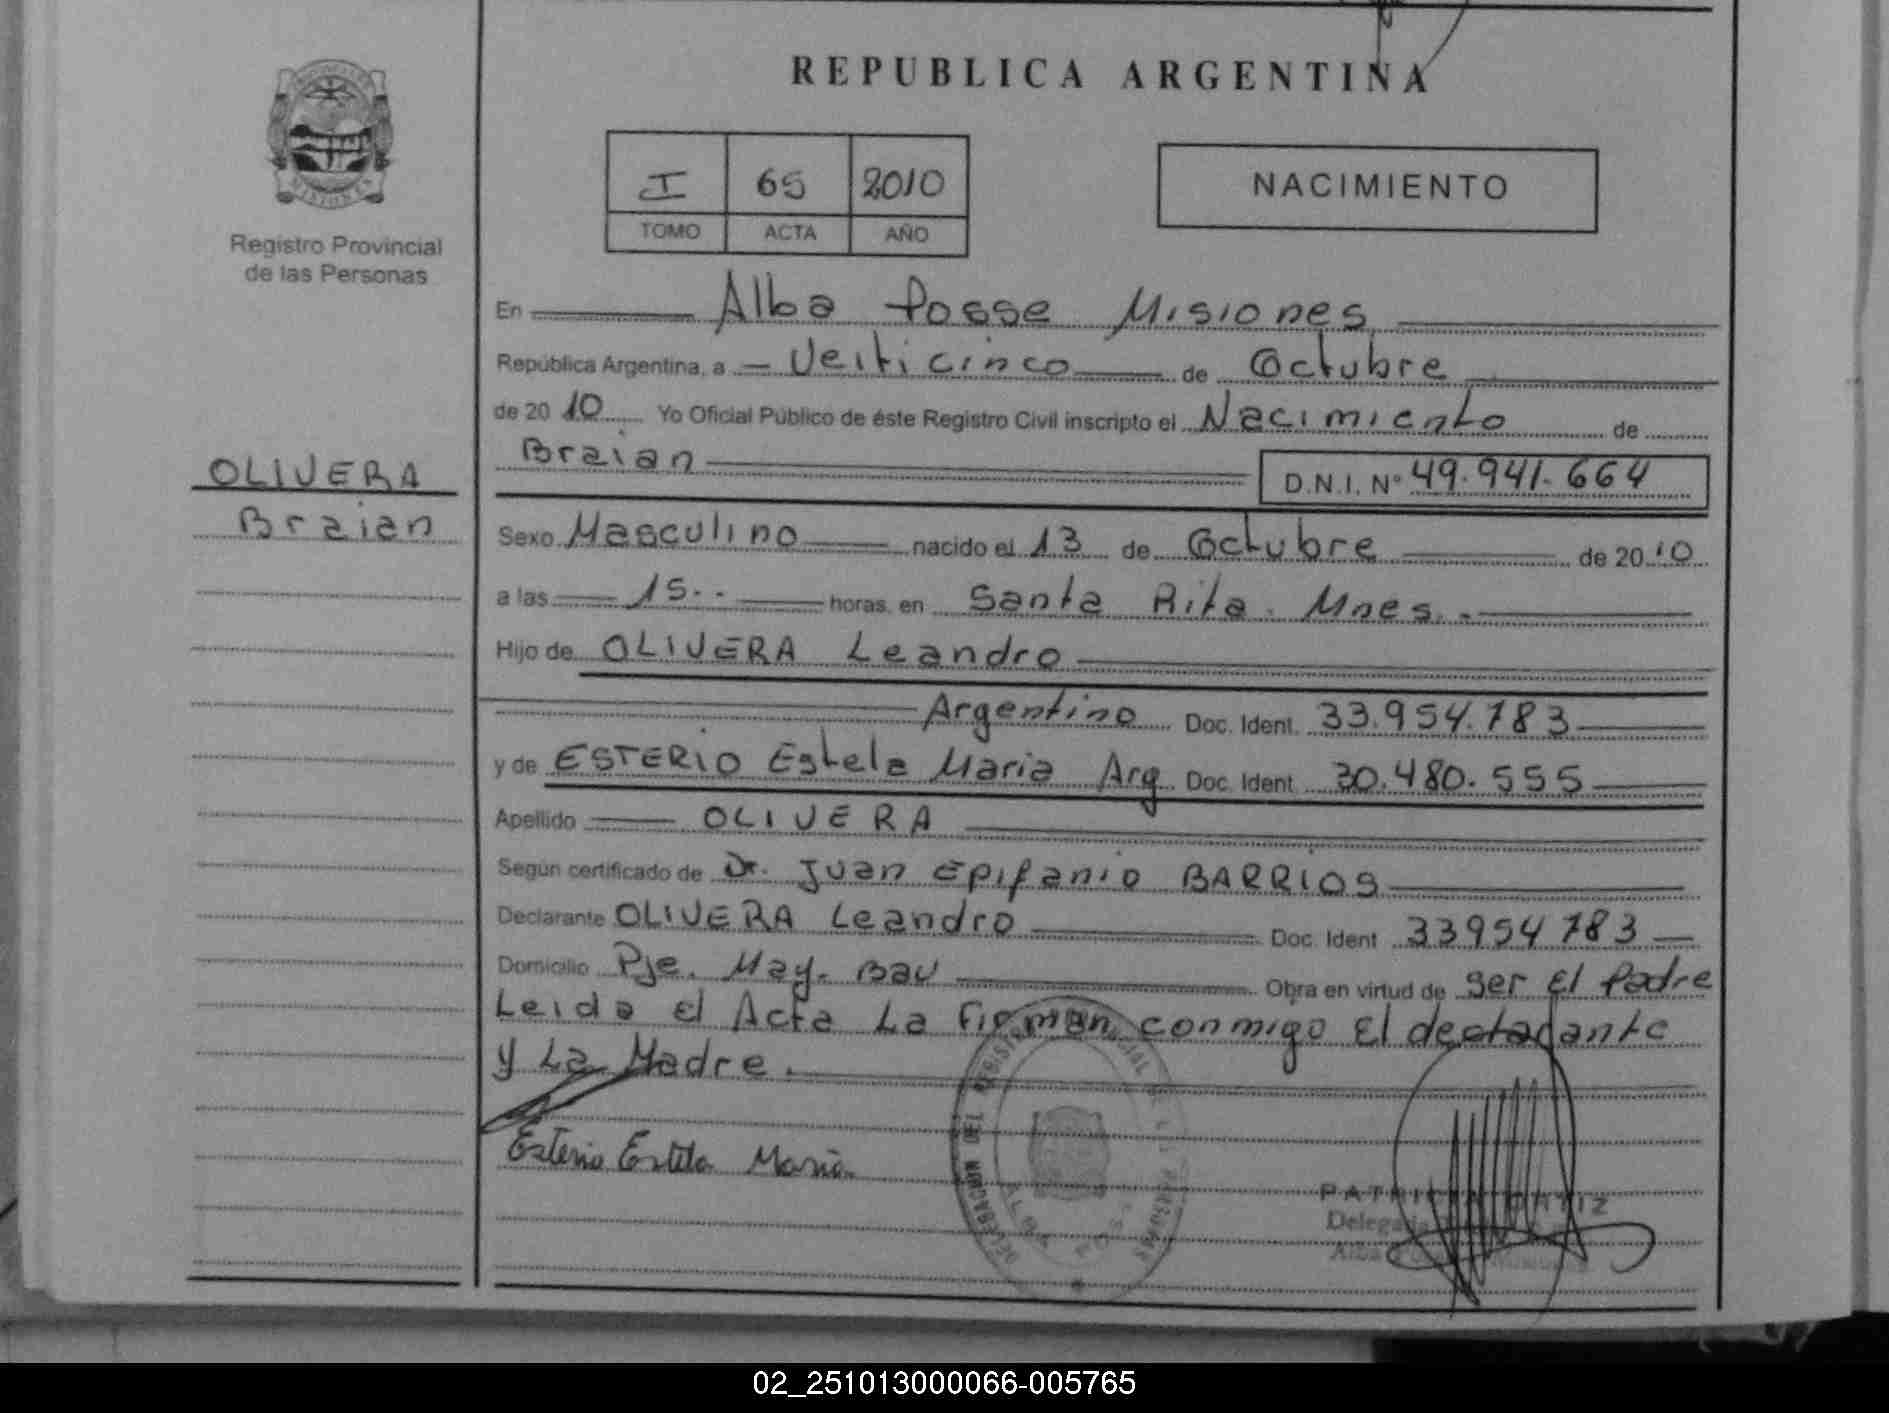 REPUBLICA ARGENTINA
I 65 2010
TOMO ACTA AÑO
NACIMIENTO
Registro Provincial
de las Personas
En Alba Posse Misiones
República Argentina, a Veiticinco de Octubre
de 2010 Yo Oficial Público de éste Registro Civil inscripto el Nacimiento de
Braian D.N.I. N° 49.941.664
OLIVERA
Braian
Sexo Masculino nacido el 13 de Octubre de 2010
a las 15.. horas, en Santa Rita. Mnes.
Hijo de OLIVERA Leandro
Argentino Doc. Ident. 33.954.783
y de ESTERIO Estela Maria Arg Doc. Ident. 30.480.555
Apellido OLIVERA
Según certificado de Dr. Juan Epifanio BARRIOS
Declarante OLIVERA Leandro Doc. Ident 33954783
Domicilio Pje. May. Bav Obra en virtud de ser El Padre
Leida el Acta La firman conmigo El declarante
y La Madre.
Esterio Estela Maria
DELEGACION DEL REGISTRO PROVINCIAL DE LAS PERSONAS
ALBA POSSE
ORTIZ
Delegada
Alba
02_251013000066-005765